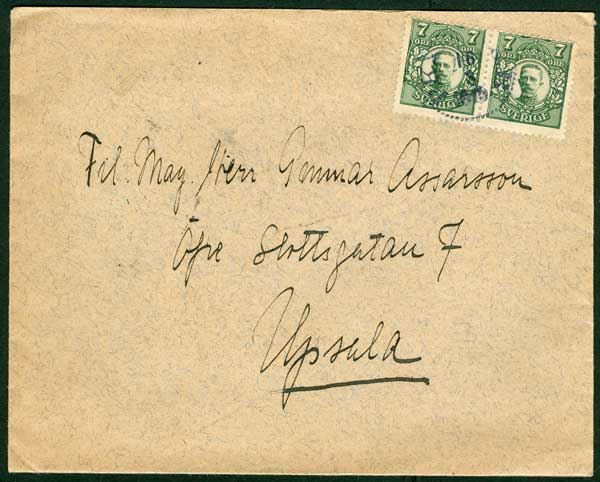 7 7
ÖRE ÖRE ÖRE ÖRE
SVERIGE SVERIGE
Fil. Mag. Herr Gunnar Assarsson
Öfre Slottsgatan 7
Upsala